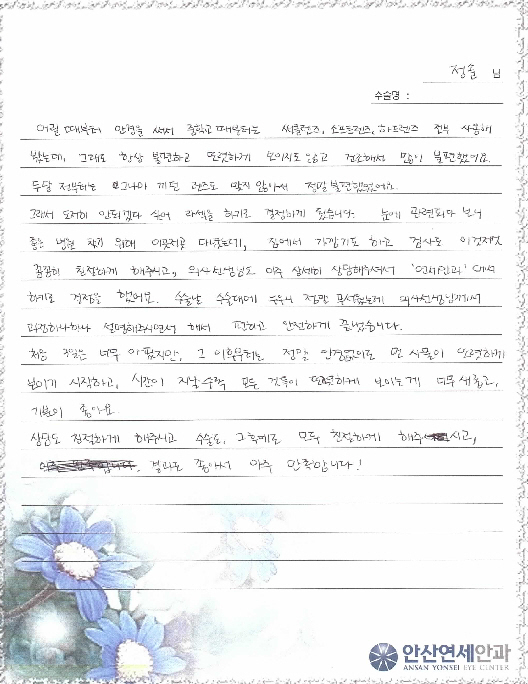 정솔 님
수술명 :
어릴 때부터 안경을 써서 중학교 때부터는 써클렌즈, 소프트렌즈, 하드렌즈 전부 사용해
봤는데, 그래도 항상 불편하고 또렷하게 보이지도 않고 건조해서 많이 불편했어요.
두달 전부터는 그나마 끼던 렌즈도 맞지 않아서 정말 불편했었어요.
그래서 도저히 안되겠다 싶어 라섹을 하기로 결정하게 됐습니다. 눈에 관련되다 보니
좋은 병원 찾기 위해 이곳저곳 다녔는데, 집에서 가깝기도 하고 검사도 이것저것
꼼꼼히 친절하게 해주시고, 의사선생님도 아주 상세히 상담해주셔서 '연세안과' 에서
하기로 결정을 했어요. 수술날 수술대에 누우니 정말 무서웠는데 의사선생님께서
과정하나하나 설명해주시면서 해서 편하고 안전하게 끝났습니다.
처음 3일은 너무 아팠지만, 그 이후부터는 정말 안경없이도 먼 사물이 또렷하게
보이기 시작하고, 시간이 지날수록 모든 것들이 또렷하게 보이는게 너무 새롭고,
기분이 좋아요.
상담도 친절하게 해주시고 수술도, 그 후에도 모두 친절하게 해주시고,
결과도 좋아서 아주 만족합니다!
안산연세안과
ANSAN YONSEI EYE CENTER